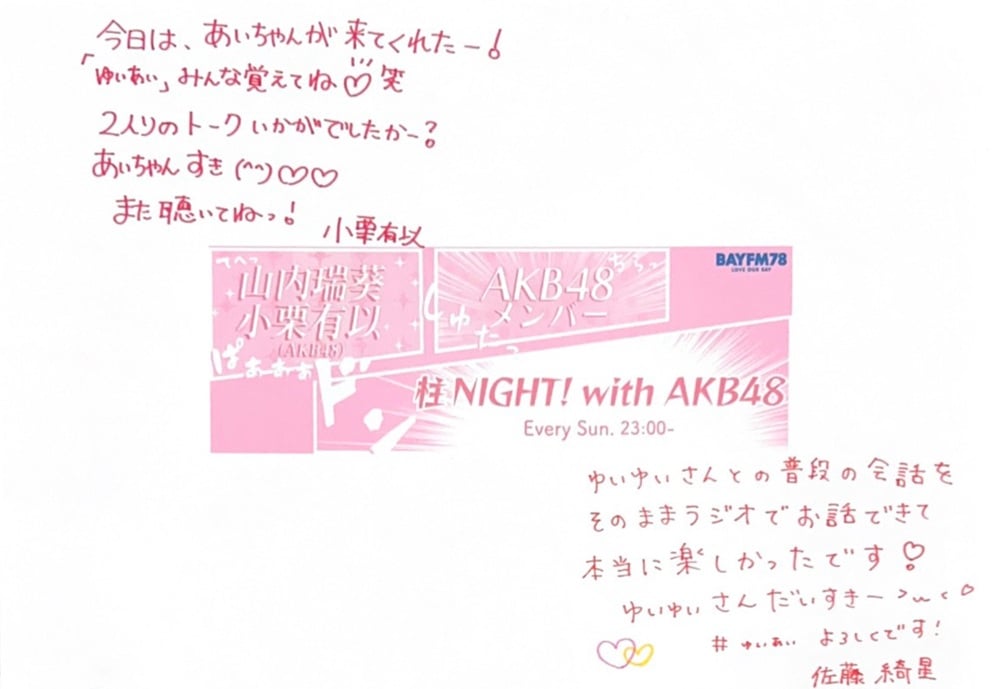 今日は、あいちゃんが来てくれたー!
「ゆいあい」みんな覚えてね♡笑
2人りのトークいかがでしたかー?
あいちゃんすき(^^)♡♡
また聴いてねっ!
小栗有以
てへっ
山内瑞葵
小栗有以
(AKB48)
ぱぁぁぁぁ
しゅたっ
AKB48
メンバー
ちらっ
BAYFM78
LOVE OUR BAY
ド
柱NIGHT! with AKB48
Every Sun. 23:00-
ゆいゆいさんとの普段の会話を
そのままラジオでお話できて
本当に楽しかったです♡
ゆいゆいさんだいすきー>ω<♡
#ゆいあい よろしくです!
佐藤 綺星